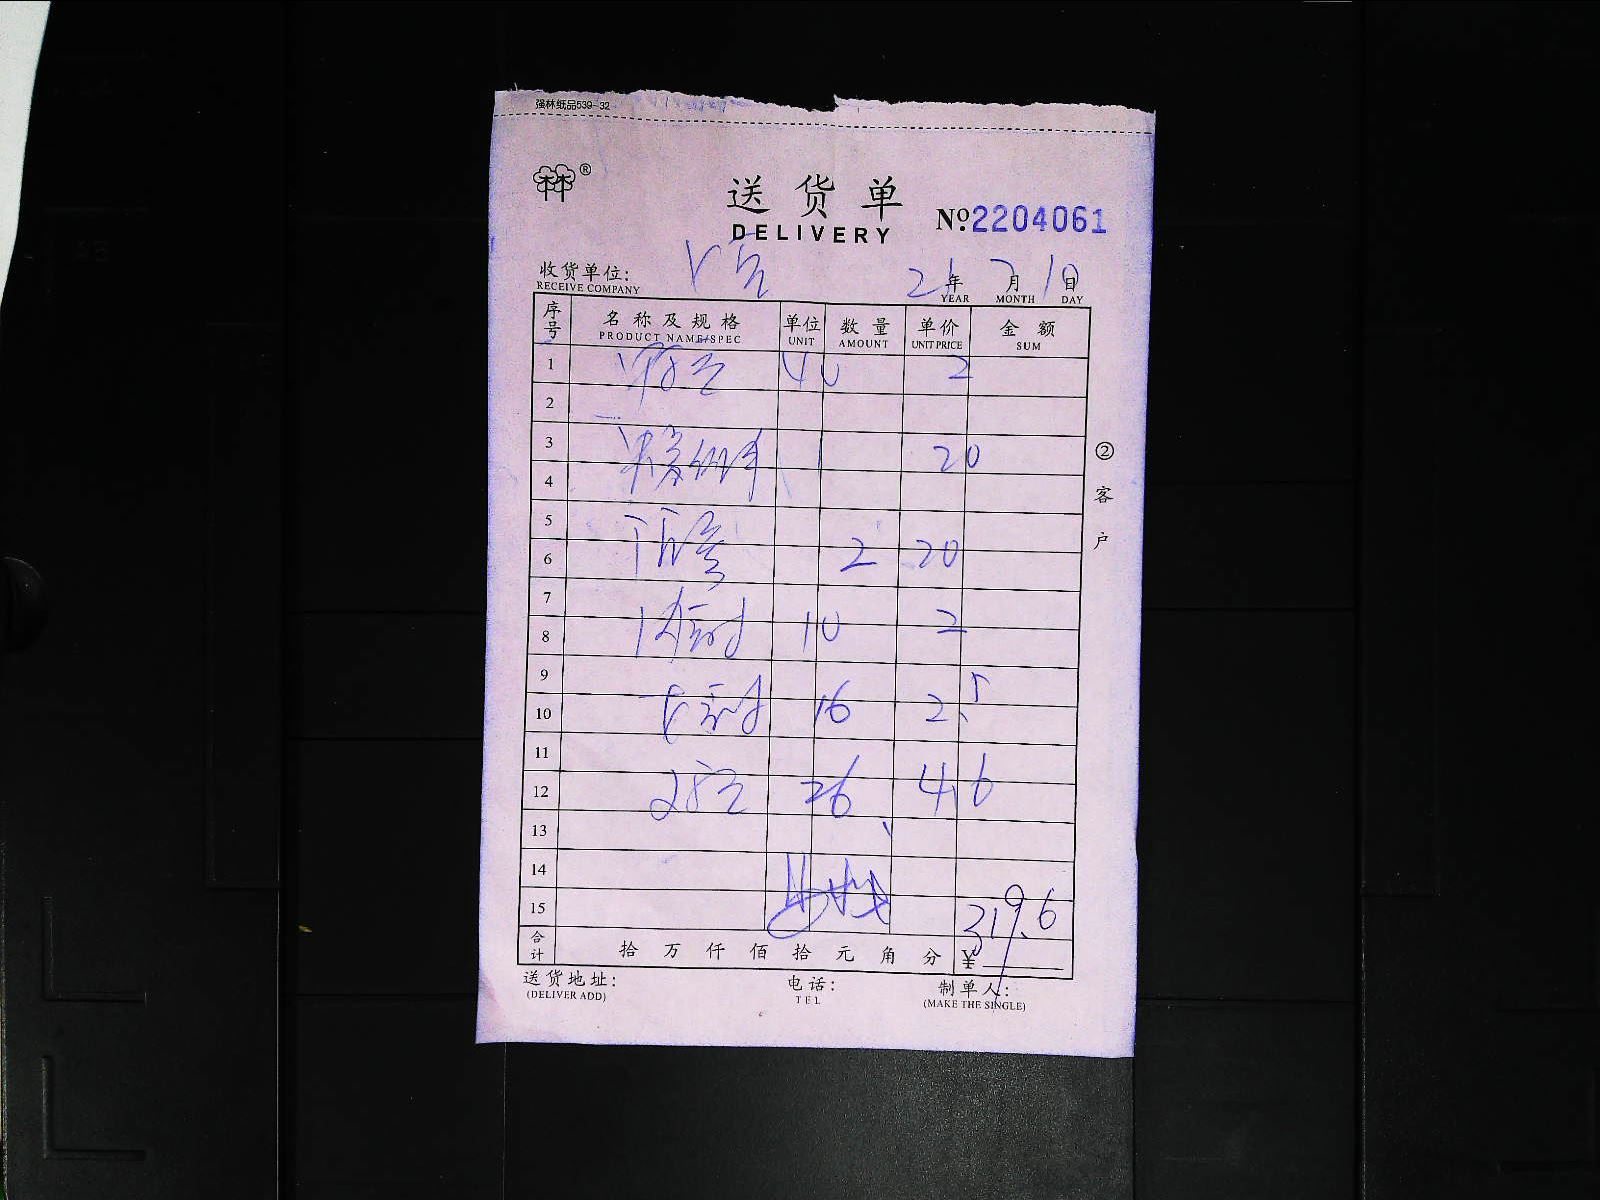 强林纸品539-32
®
送货单
DELIVERY
Nº:2204061
收货单位:
RECEIVE COMPANY
21年 7月 1日
YEAR MONTH DAY
序号 名称及规格 单位 数量 单价 金额
PRODUCT NAME/SPEC UNIT AMOUNT UNIT PRICE SUM
1 40 2
2
3 1 20
4
5
6 2 20
7
8 10 2
9
10 16 2.5
11
12 26 4.6
13
14
15 319.6
合计 拾 万 仟 佰 拾 元 角 分 ¥
②客户
送货地址: 电话: 制单人:
(DELIVER ADD) TEL (MAKE THE SINGLE)